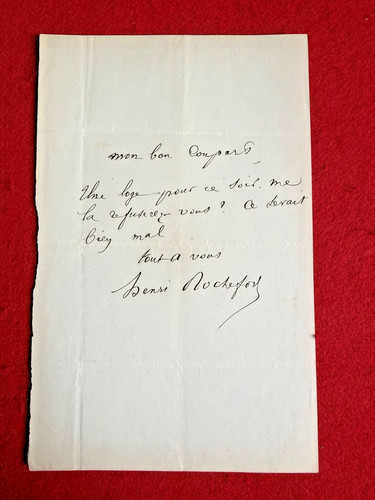 mon bon Coupart,
Une loge pour ce soir. me
la refuserez vous? Ce serait
bien mal
tout a vous
henri Rochefort